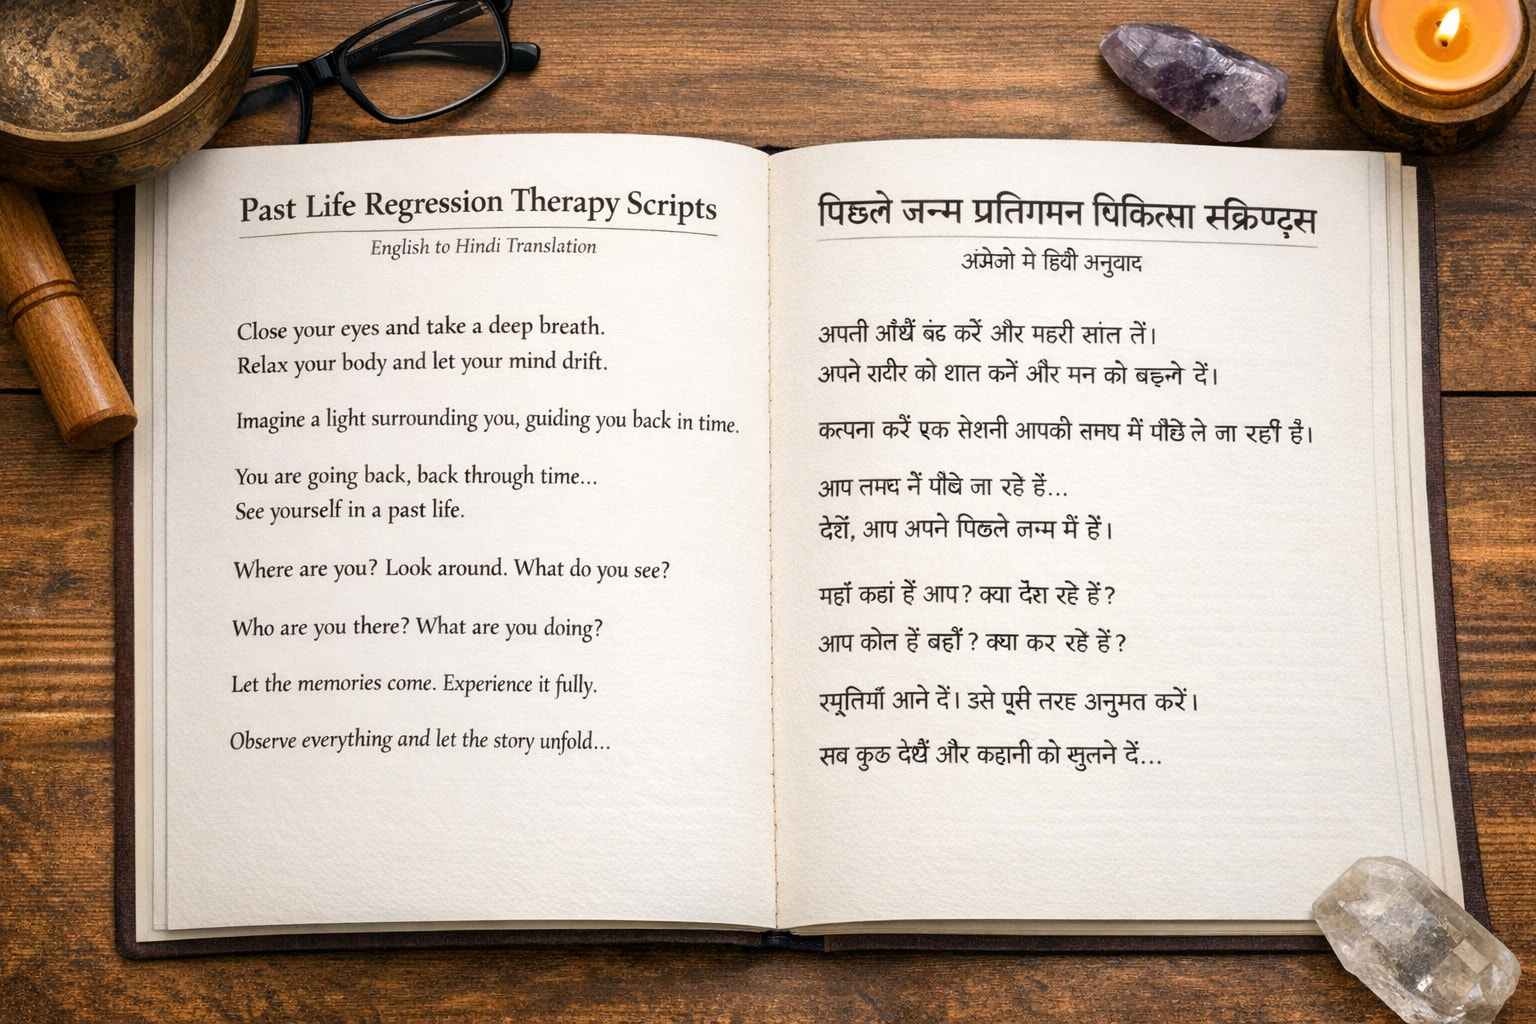 Past Life Regression Therapy Scripts
English to Hindi Translation
Close your eyes and take a deep breath.
Relax your body and let your mind drift.
Imagine a light surrounding you, guiding you back in time.
You are going back, back through time...
See yourself in a past life.
Where are you? Look around. What do you see?
Who are you there? What are you doing?
Let the memories come. Experience it fully.
Observe everything and let the story unfold...
जन्म प्रतिगमन
मे अनुवाद
अपती बंद करें और महरी सांत तें।
अपने को शात कनें और मन को दें।
कत्पना करें एक सेशनी आपकी समघ में पौछे ले जा रही है।
आप तमघ नें पौबे जा रहे हें...
आप अपने जन्म में हैं।
महाँ कहां हें आप? क्या रहे हें?
आप कोल हें बहाँ? क्या कर रहे हें?
आने दें। उसे तरह अनुमत करें।
सब कुछ और कहानी को सुलने दें...